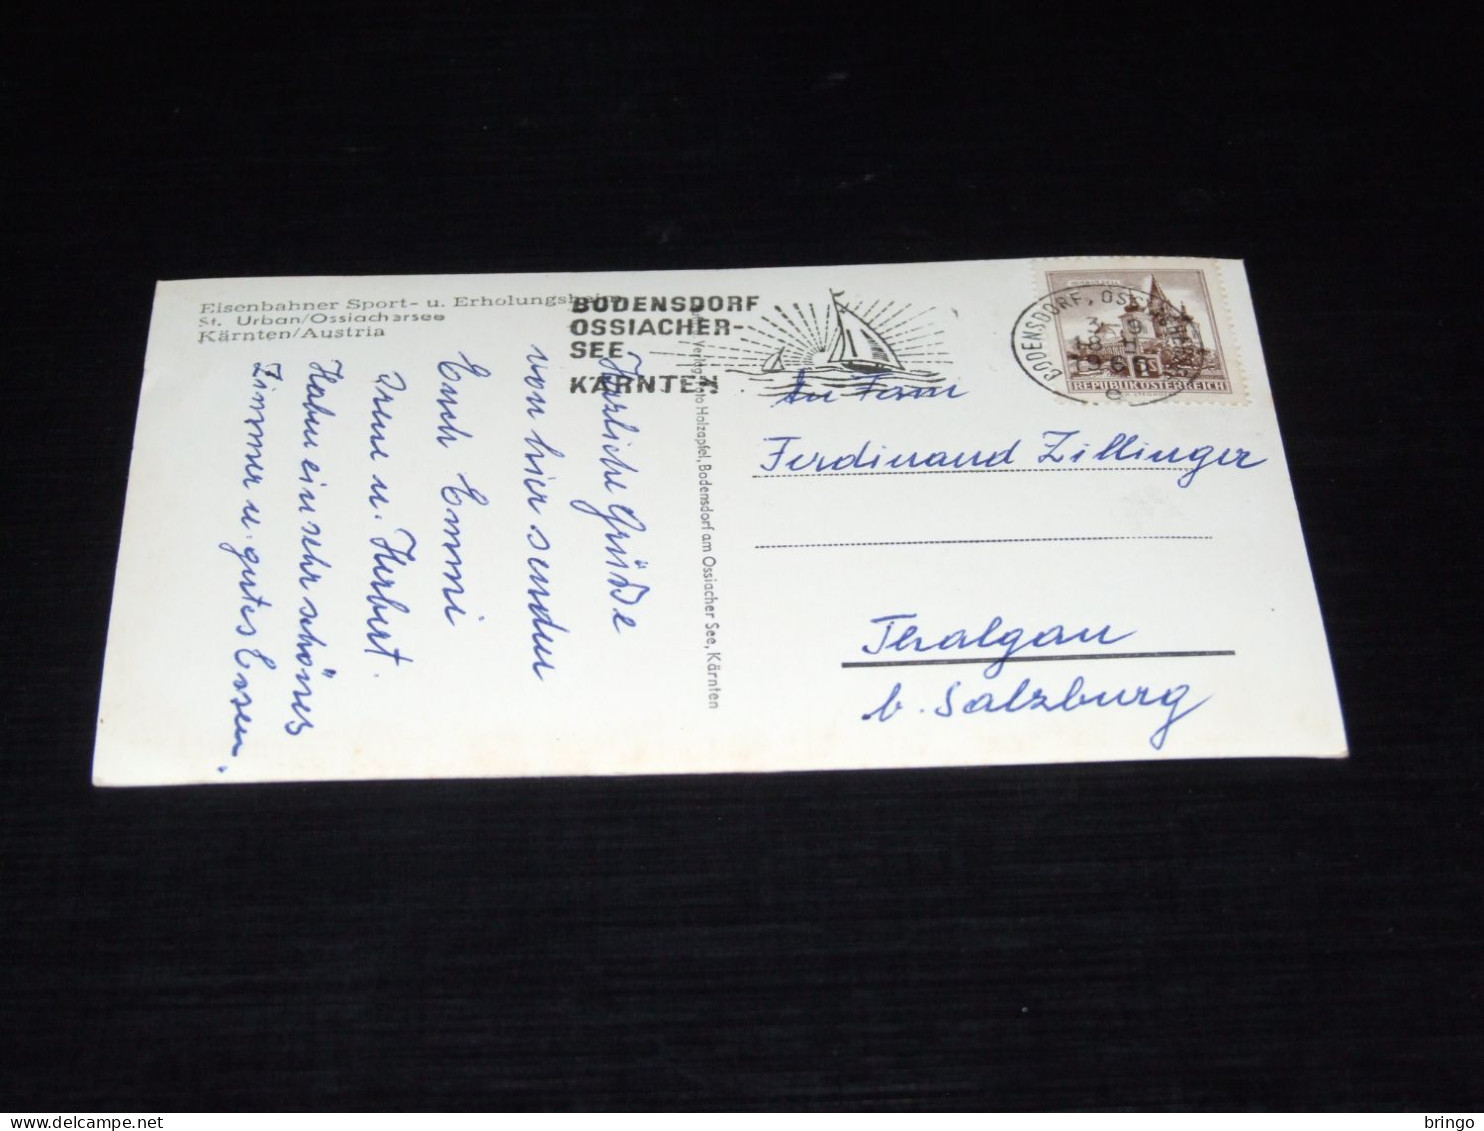 Eisenbahner Sport- u. Erholungsheim
St. Urban/Ossiachersee
Kärnten/Austria
BODENSDORF
OSSIACHER-
SEE
KÄRNTEN
Herzliche Grüße
von hier senden
Euch Emmi
Irene u. Herbert.
Haben ein sehr schönes
Zimmer u. gutes Essen.
Holzapfel, Bodensdorf am Ossiacher See, Kärnten
BODENSDORF, 
REPUBLIK ÖSTERREICH
An Fam
Ferdinand Zillinger
Thalgau
b. Salzburg
bringo